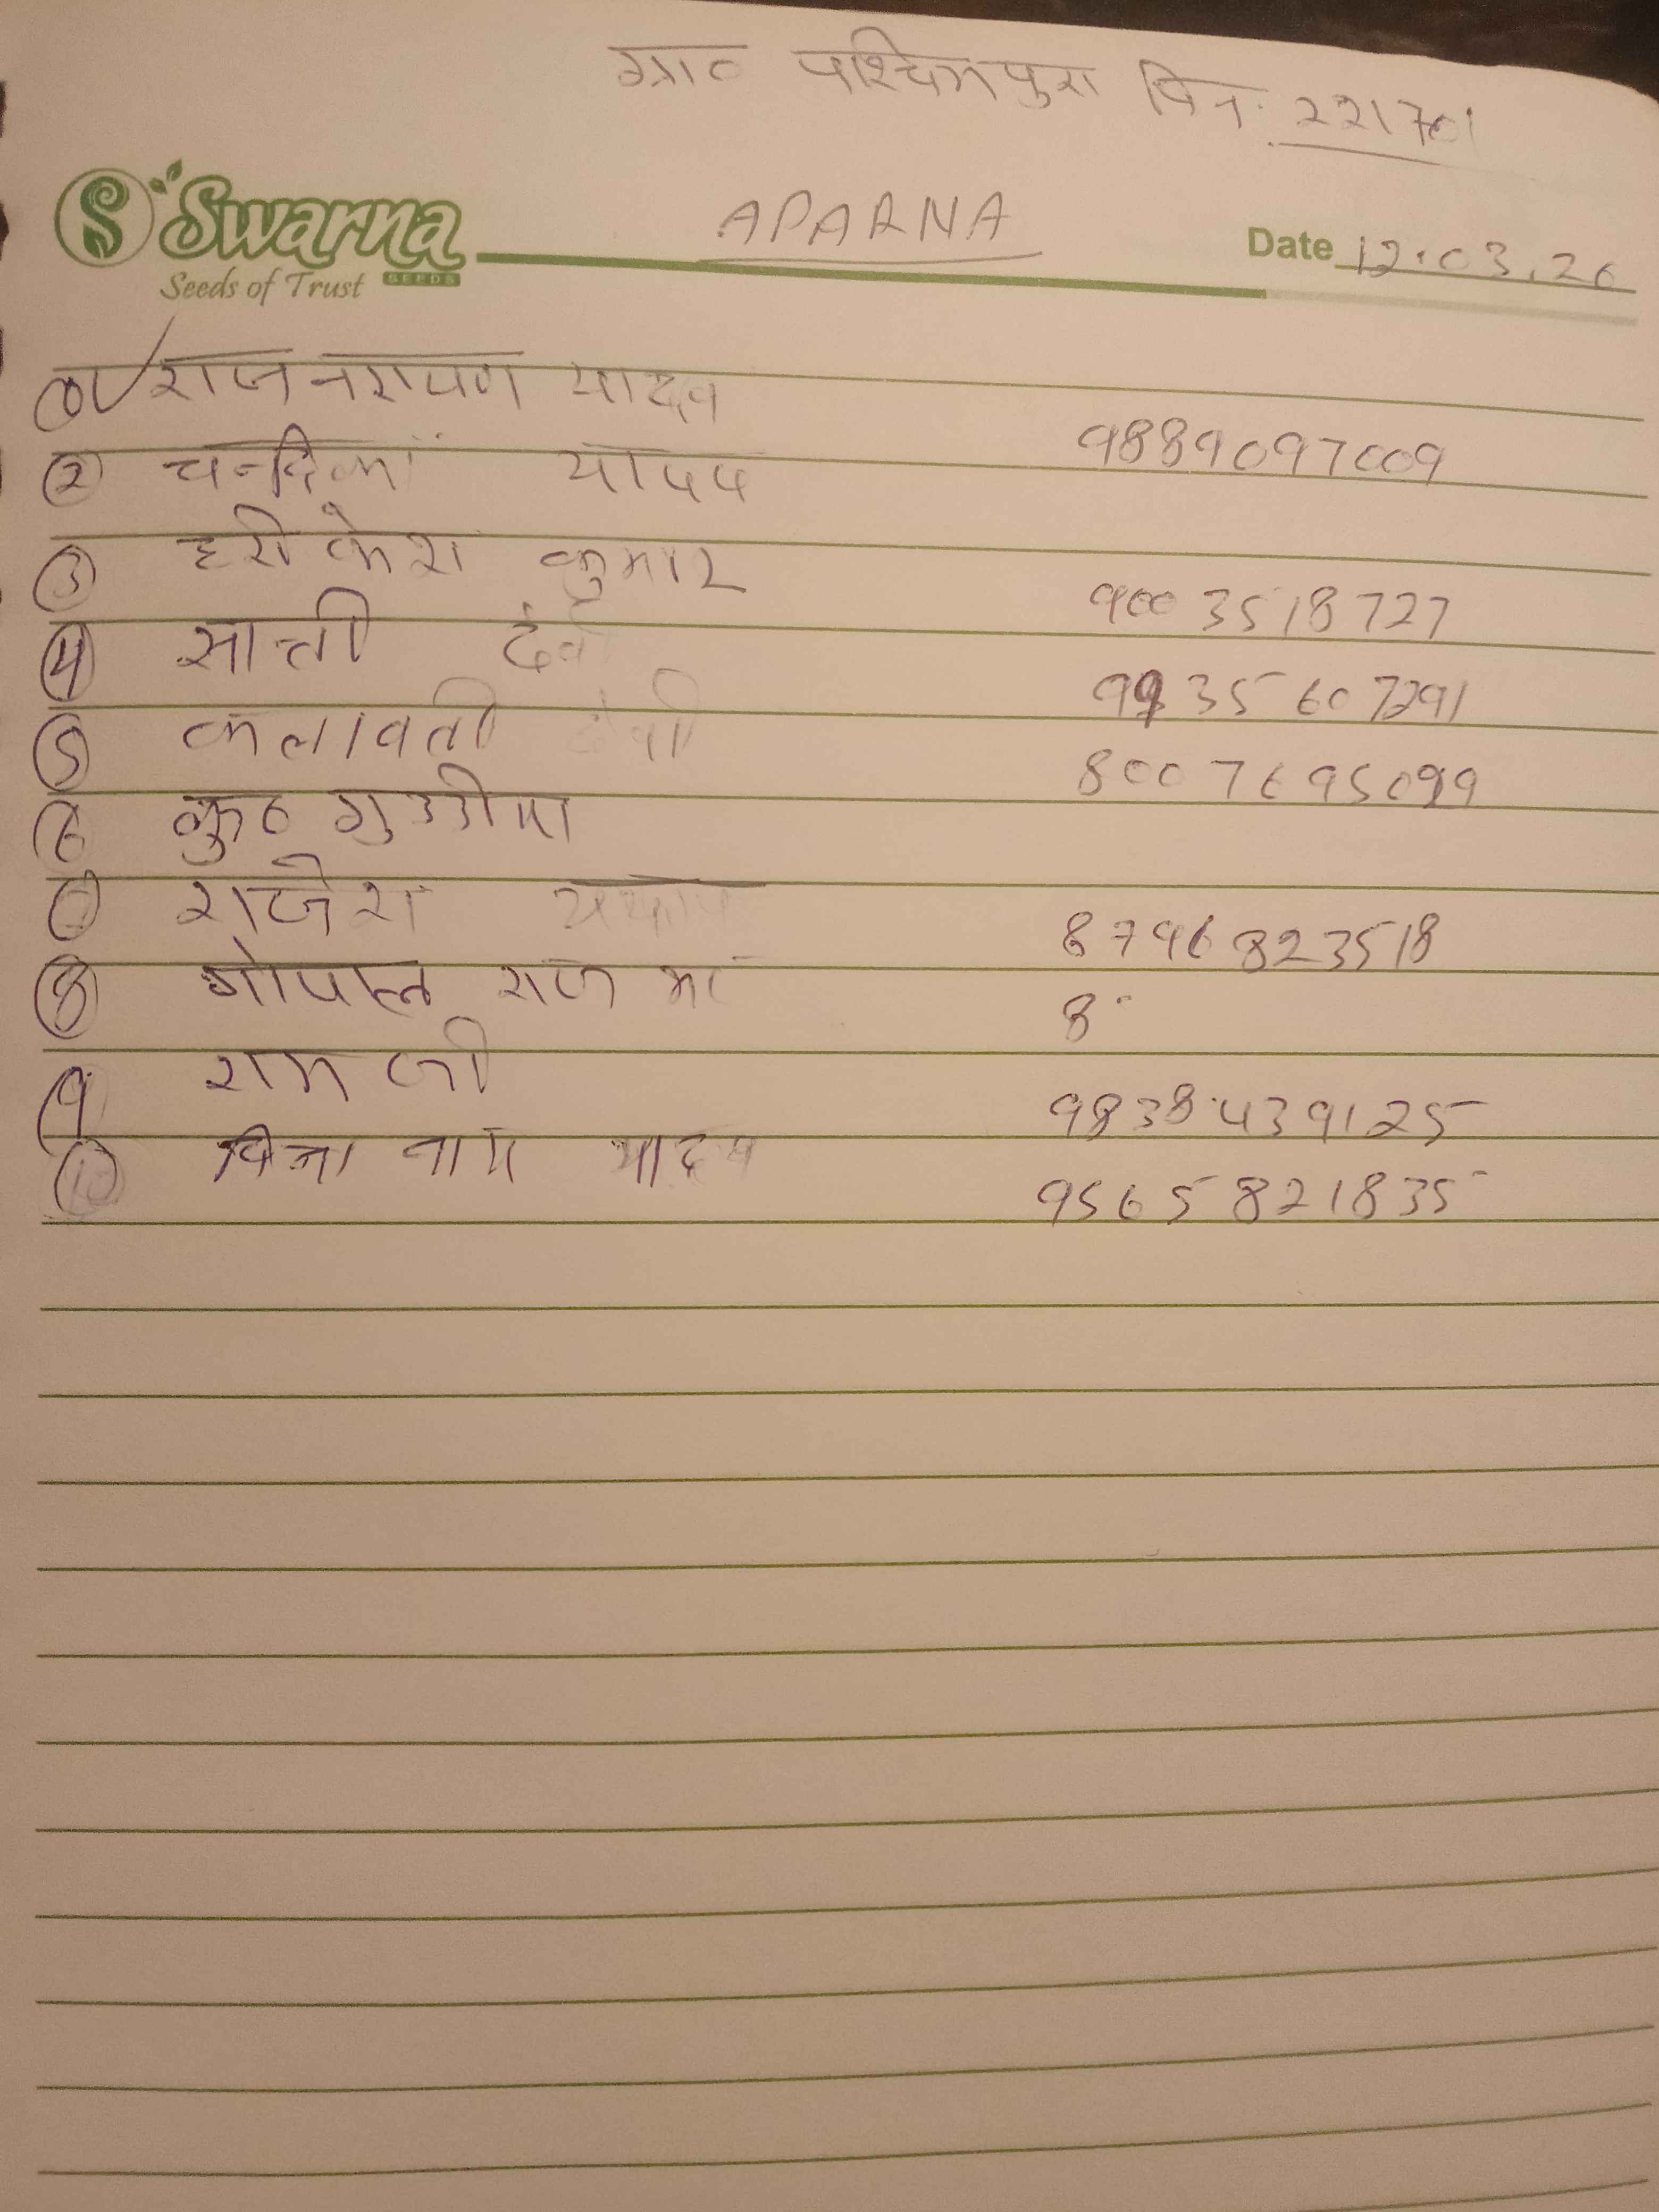 ग्रा० पश्चिमपुरा पिन. 221701
Swarna
SEEDS
Seeds of Trust
APARNA
Date 12.03.26
① राजनरायण यादव
② चन्द्रिका यादव 9889097009
③ हरीकेश कुमार
④ सात्ती देवी 9003518727
⑤ कलावती देवी 9935607291
⑥ कु० गुडडीया 8007695099
राजेश
⑧ गोपाल राज 8796823518
8
9 राम जी
9838439125
⑩ यादव
9565821835